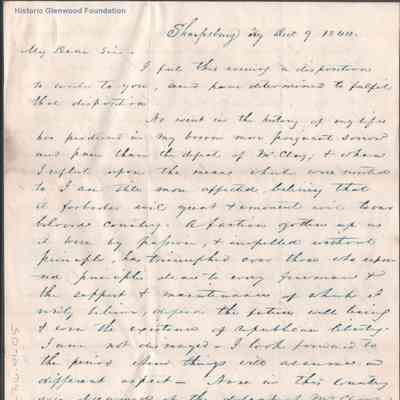 Historic Glenwood Foundation
Sharpsburg Ky Dec. 9 1844.
My Dear Sir.
I feel this evening a disposition
to write to you, and have determined to fulfil
that disposition
No event in the history of my life
has produced in my bosom more poignant sorrow
and pain than the defeat of Mr Clay; & when
I reflect upon the means which were resorted
to I am still more affected, believing that
it forbodes evil great & imminent evil to our
beloved Country. A faction gotten up as
it were by passion, & impelled without
principle, has triumphed over those who
principles dear to every Freeman &
the support & maintainance of which I
verily believe, depen the future well being
& even the existence of republican liberty.
I am not dismayed - I look forward to
the period when things will assume a
different aspect - None in this country
are of the defeat of Mr Clay